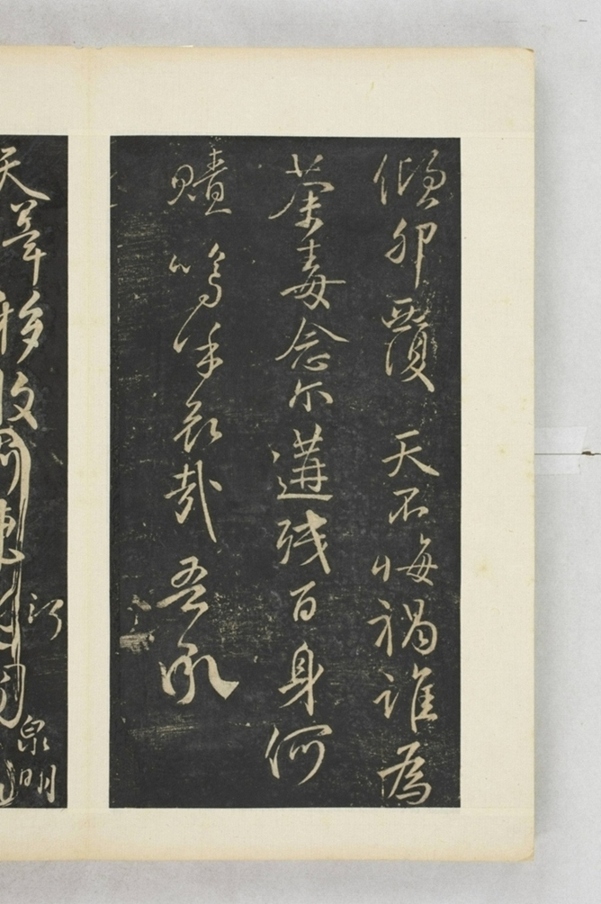 傾卵覆天不悔禍誰為
荼毒念尔遘残百身何
贖嗚乎哀哉吾承
天澤移牧河東近
泉明